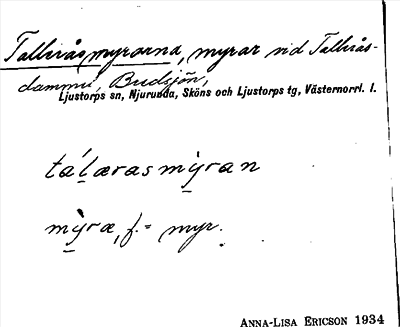 Tallråsmyrarna, myrar vid Tallrås-
dammen, Budsjön,
Ljustorps sn, Njurunda, Sköns och Ljustorps tg, Västernorrl. l.
tálærasmỳran
mỳræ, f. = myr.
ANNA-LISA ERICSON 1934